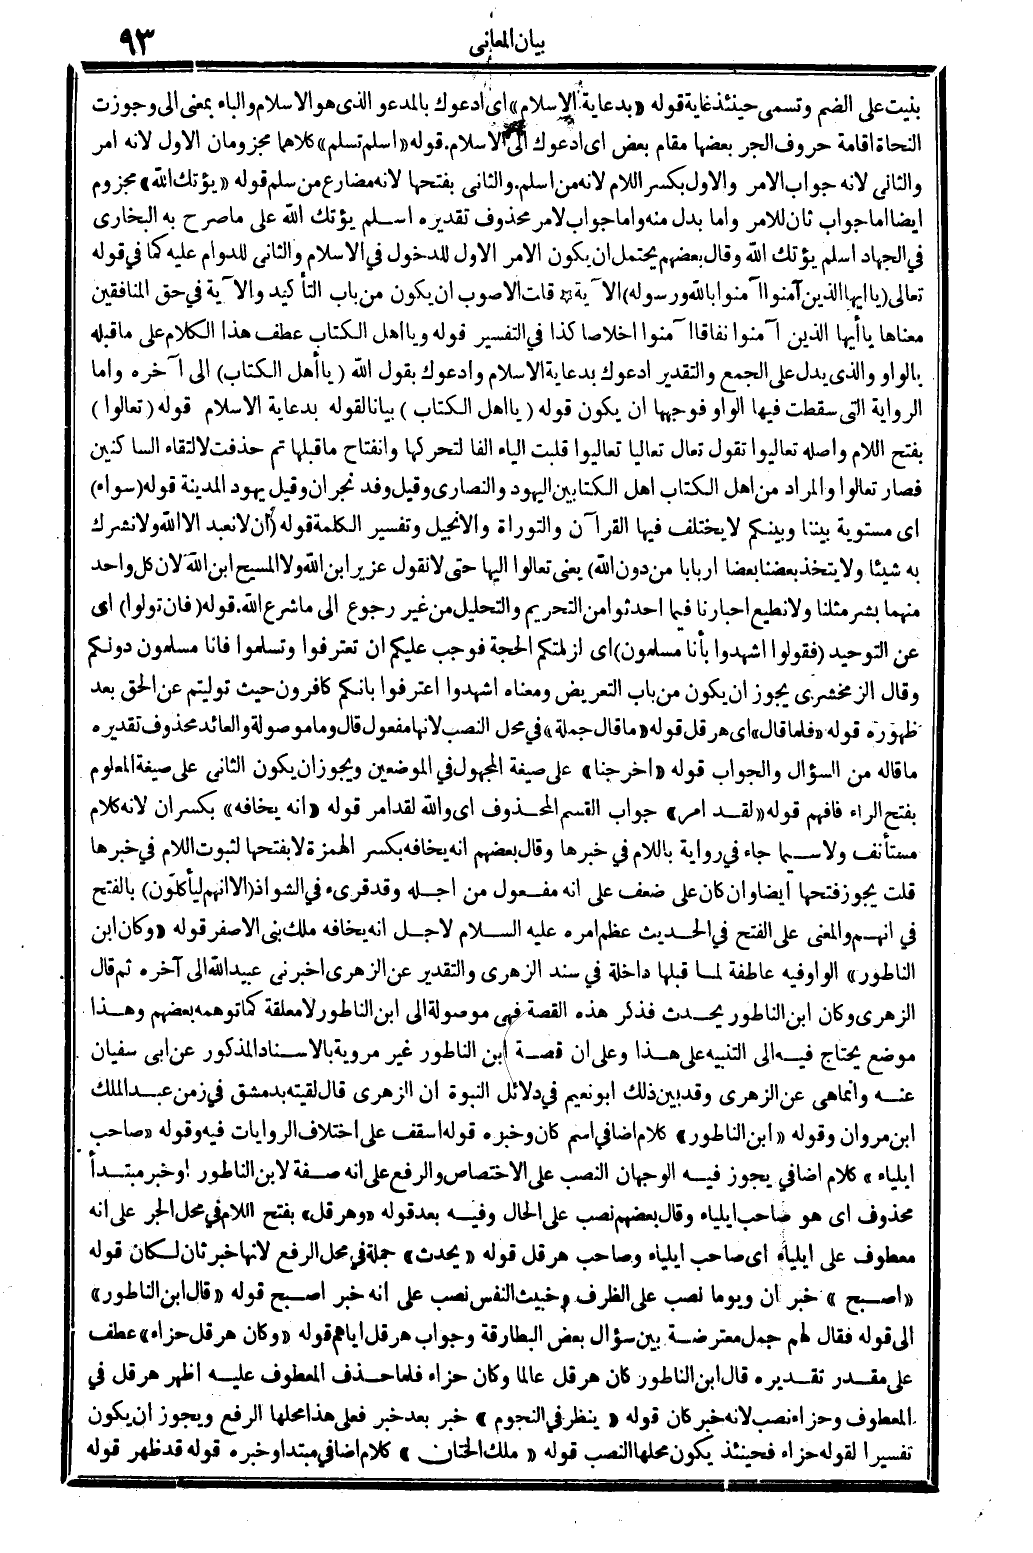 بيان المعانى ٩٣
بنيت على الضم وتسمى حينئذ غاية قوله «بدعاية الاسلام» اى ادعوك بالمدعو الذى هو الاسلام والباء بمعنى الى وجوزت
النحاة اقامة حروف الجر بعضها مقام بعض اى ادعوك الى الاسلام. قوله «اسلم تسلم» كلاهما مجزومان الاول لانه امر
والثانى لانه جواب الامر والاول بكسر اللام لانه من اسلم. والثانى بفتحها لانه مضارع من سلم قوله «يؤتك الله» مجزوم
ايضا اما جواب ثان للامر واما بدل منه واما جواب لامر محذوف تقديره اسلم يؤتك الله على ماصرح به البخارى
فى الجهاد اسلم يؤتك الله وقال بعضهم يحتمل ان يكون الامر الاول للدخول فى الاسلام والثانى للدوام عليه كما فى قوله
تعالى (ياايها الذين آمنوا آمنوا بالله ورسوله) الآية ☆ قات الاصوب ان يكون من باب التأكيد والآية فى حق المنافقين
معناها ياأيها الذين آمنوا نفاقا آمنوا اخلاصا كذا فى التفسير قوله ويااهل الكتاب عطف هذا الكلام على ماقبله
بالواو والذى يدل على الجمع والتقدير ادعوك بدعاية الاسلام وادعوك بقول الله (ياأهل الكتاب) الى آخره واما
الرواية التى سقطت فيها الواو فوجهها ان يكون قوله (يااهل الكتاب) بيانا لقوله بدعاية الاسلام قوله (تعالوا)
بفتح اللام واصله تعاليوا تقول تعال تعاليا تعاليوا قلبت الياء الفا لتحركها وانفتاح ماقبلها ثم حذفت لالتقاء الساكنين
فصار تعالوا والمراد من اهل الكتاب اهل الكتابين اليهود والنصارى وقيل وفد نجران وقيل يهود المدينة قوله (سواء)
اى مستوية بيننا وبينكم لايختلف فيها القرآن والتوراة والانجيل وتفسير الكلمة قوله (أن لانعبد الا الله ولا نشرك
به شيئا ولا يتخذ بعضنا بعضا اربابا من دون الله) يعنى تعالوا اليها حتى لانقول عزير ابن الله ولا المسيح ابن الله لان كل واحد
منهما بشر مثلنا ولا نطيع احبارنا فيما احدثوا من التحريم والتحليل من غير رجوع الى ماشرع الله. قوله (فان تولوا) اى
عن التوحيد (فقولوا اشهدوا بأنا مسلمون) اى ازلمتكم الحجة فوجب عليكم ان تعترفوا وتسلموا فانا مسلمون دونكم
وقال الزمخشرى يجوز ان يكون من باب التعريض ومعناه اشهدوا اعترفوا بانكم كافرون حيث توليتم عن الحق بعد
ظهوره قوله «فلما قال» اى هرقل قوله «ما قال جملة» فى محل النصب لانها مفعول قال وما موصولة والعائد محذوف تقديره
ماقاله من السؤال والجواب قوله «اخرجنا» على صيغة المجهول فى الموضعين ويجوز ان يكون الثانى على صيغة المعلوم
بفتح الراء فافهم قوله «لقد امر» جواب القسم المحذوف اى والله لقد امر قوله «انه يخافه» بكسر ان لانه كلام
مستأنف ولاسيما جاء فى رواية باللام فى خبرها وقال بعضهم انه يخافه بكسر الهمزة لا بفتحها لثبوت اللام فى خبرها
قلت يجوز فتحها ايضا وان كان على ضعف على انه مفعول من اجله وقد قرىء فى الشواذ (الا انهم ليأكلون) بالفتح
فى انهم والمعنى على الفتح فى الحديث عظم امره عليه السلام لاجل انه يخافه ملك بنى الاصفر قوله «وكان ابن
الناطور» الواو فيه عاطفة لما قبلها داخلة فى سند الزهرى والتقدير عن الزهرى اخبرنى عبيد الله الى آخره ثم قال
الزهرى وكان ابن الناطور يحدث فذكر هذه القصة فهى موصولة الى ابن الناطور لا معلقة كما توهمه بعضهم وهذا
موضع يحتاج فيه الى التنبيه على هذا وعلى ان قصة ابن الناطور غير مروية بالاسناد المذكور عن ابى سفيان
عنه وانما هى عن الزهرى وقد بين ذلك ابو نعيم فى دلائل النبوة ان الزهرى قال لقيته بدمشق فى زمن عبد الملك
ابن مروان وقوله «ابن الناطور» كلام اضافى اسم كان وخبره قوله اسقف على اختلاف الروايات فيه وقوله «صاحب
ايلياء» كلام اضافى يجوز فيه الوجهان النصب على الاختصاص والرفع على انه صفة لابن الناطور او خبر مبتدأ
محذوف اى هو صاحب ايلياء وقال بعضهم نصب على الحال وفيه بعد قوله «وهرقل» بفتح اللام فى محل الجر على انه
معطوف على ايلياء اى صاحب ايلياء وصاحب هرقل قوله «يحدث» جملة فى محل الرفع لانها خبر ثان لكان قوله
«اصبح» خبر ان ويوما نصب على الظرف وخبيث النفس نصب على انه خبر اصبح قوله «قال ابن الناطور»
الى قوله فقال لهم جمل معترضة بين سؤال بعض البطارقة وجواب هرقل اياهم قوله «وكان هرقل حزاء» عطف
على مقدر تقديره قال ابن الناطور كان هرقل عالما وكان حزاء فلما حذف المعطوف عليه اظهر هرقل فى
المعطوف وحزاء نصب لانه خبر كان قوله «ينظر فى النجوم» خبر بعد خبر فعلى هذا محلها الرفع ويجوز ان يكون
تفسيرا لقوله حزاء فحينئذ يكون محلها النصب قوله «ملك الختان» كلام اضافى مبتدا وخبره قوله قد ظهر قوله